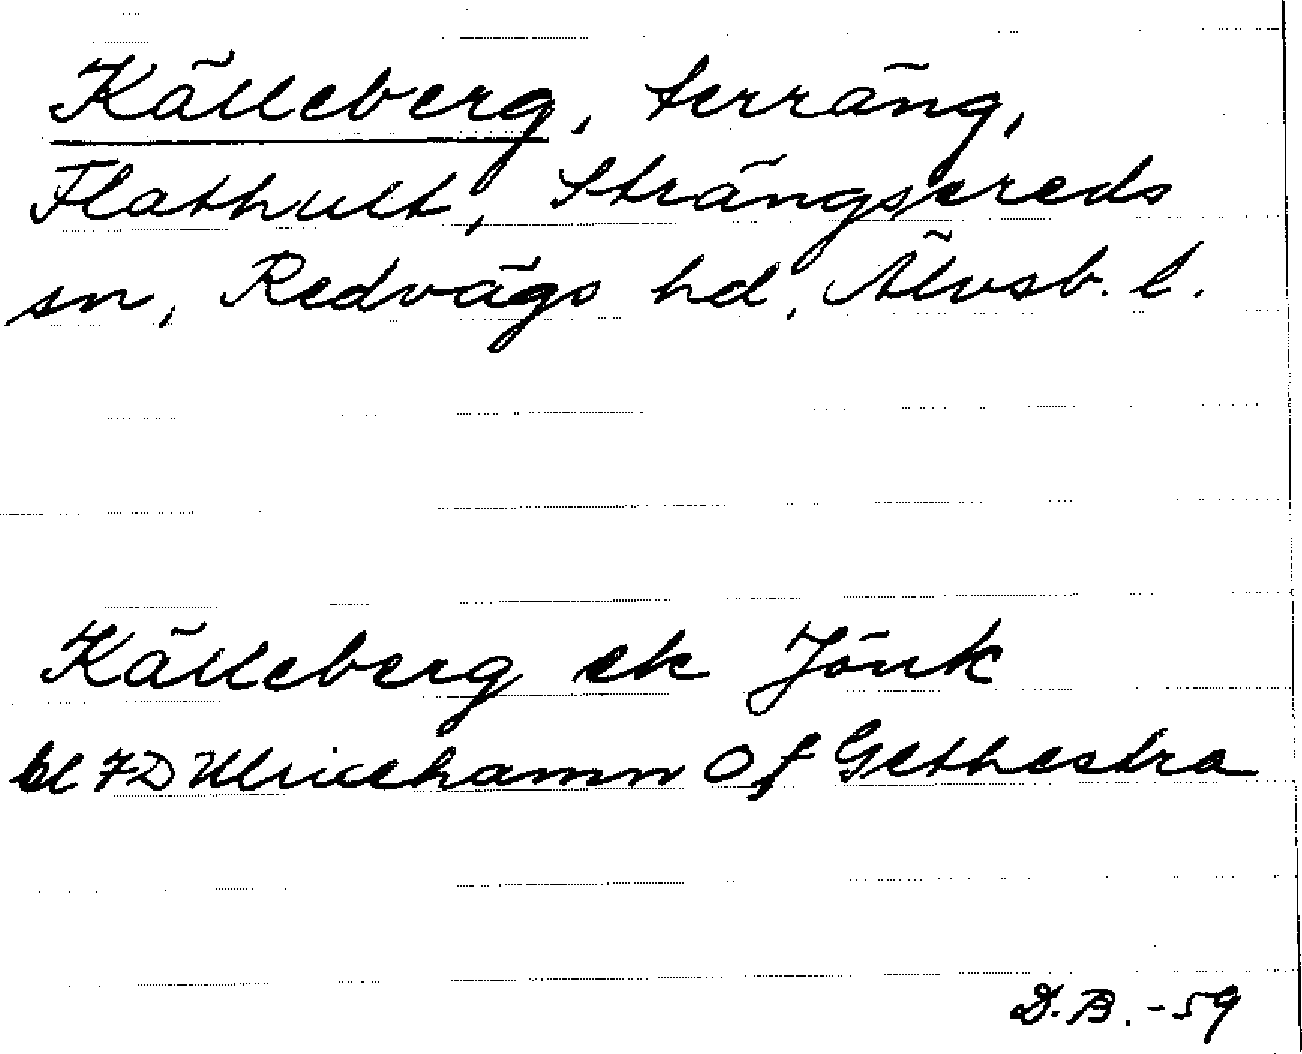 Källeberg, terräng,
Flathult, Strängsereds
sn, Redvägs hd, Älvsb. l.
Källeberg ek Jönk
bl 7D Ulricehamn Of Gethestra
D.B. -59